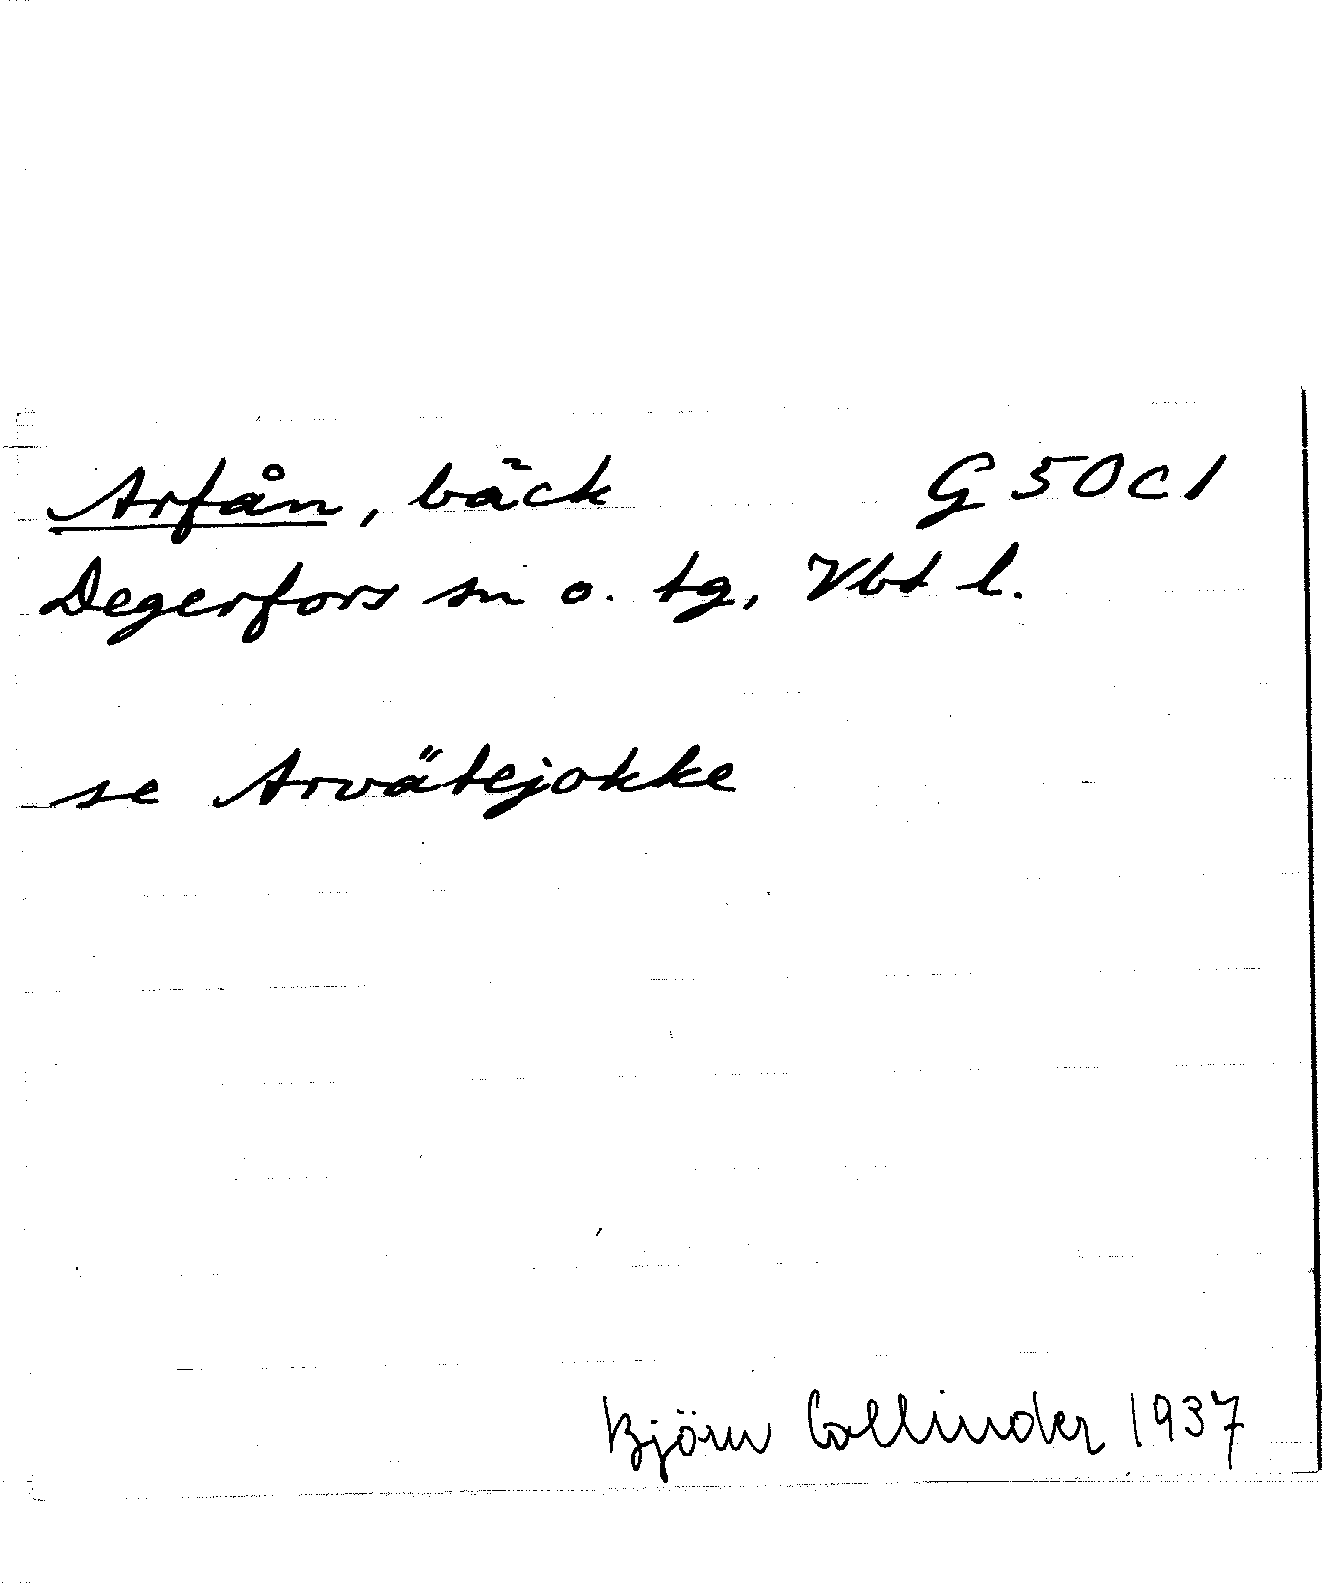 Arfån, bäck G 50 c 1
Degerfors sn o. tg, Vbt l.
se Arvätejokke
Björn Collinder 1937